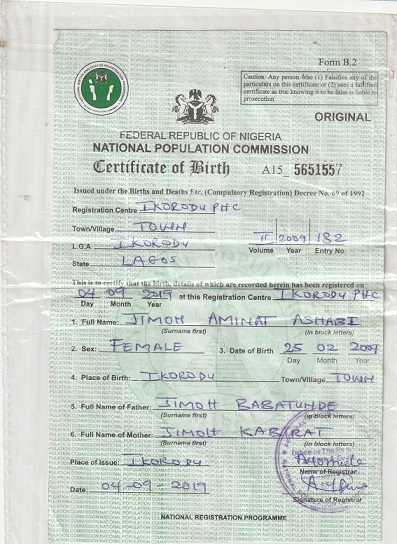 Form B.2
Caution: Any person who (1) Falsifies any of the
particulars on this certificate or (2) uses a falsified
certificate as true knowing it to be false is liable to
prosecution
ORIGINAL
FEDERAL REPUBLIC OF NIGERIA
NATIONAL POPULATION COMMISSION
Certificate of Birth A15_ 5651557
Issued under the Births and Deaths Etc, (Compulsory Registration) Decree No. 69 of 1992
Registration Centre IKORODU PHC
Town/Village TOWN
L.G.A IKORODU II 2009 182
Volume Year Entry No.
State LAGOS
This is to certify that the birth, details of which are recorded herein has been registered on
04 09 2019 at this Registration Centre IKORODU PHC
Day Month Year
1. Full Name: JIMOH AMINAT ASHABI
(Surname first) (in block letters)
2. Sex: FEMALE 3. Date of Birth 25 02 2009
Day Month Year
4. Place of Birth: IKORODU Town/Village TOWN
5. Full Name of Father: JIMOH BABATUNDE
(Surname first) (in block letters)
6. Full Name of Mother: JIMOH KABIRAT
(Surname first) (in block letters)
Place of Issue: IKORODU
Name of Registrar
Date 04-09-2019
Signature of Registrar
NATIONAL REGISTRATION PROGRAMME